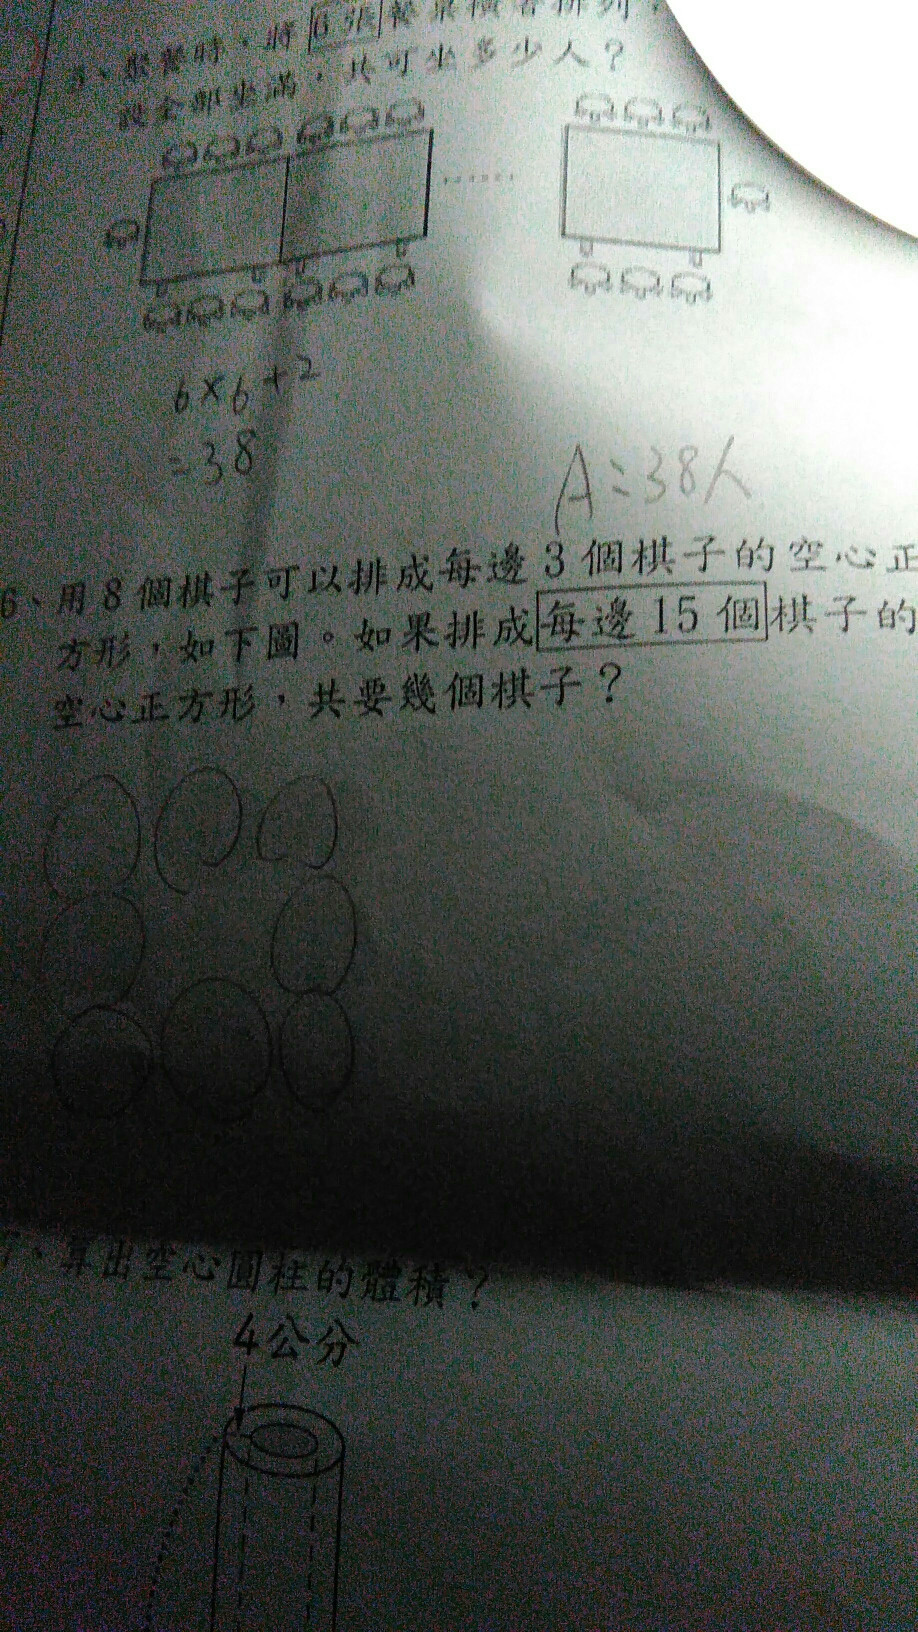 5、聚餐時，將6張餐桌橫著排列，
設全部坐滿，共可坐多少人？
6×6+2
=38
A=38人
6、用8個棋子可以排成每邊3個棋子的空心正
方形，如下圖。如果排成每邊15個棋子的
空心正方形，共要幾個棋子？
、算出空心圓柱的體積？
4公分